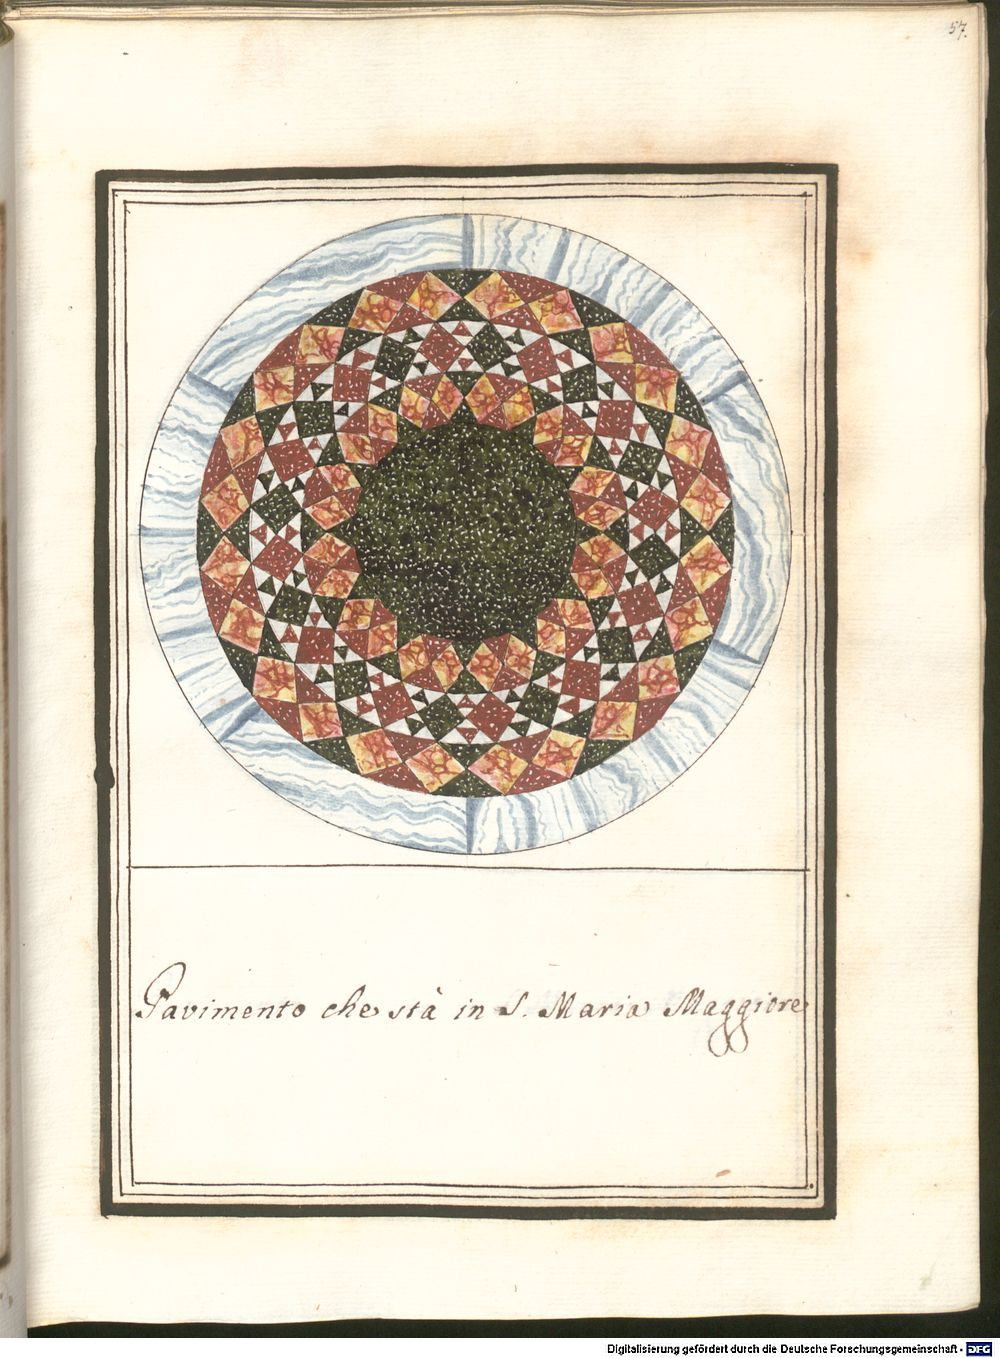 57.
Pavimento che stà in S. Maria Maggiore
Digitalisierung gefördert durch die Deutsche Forschungsgemeinschaft - DFG